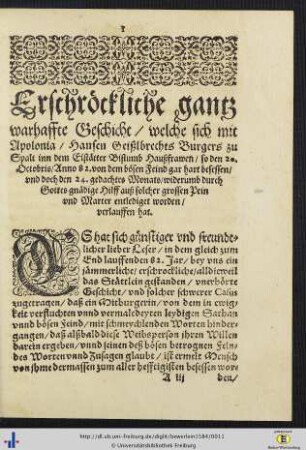 Erschröckliche gantz
warhaffte Geschicht / welche sich mit
Apolonia / Hansen Geißlbrechts Burgers zu
Spalt inn dem Eistätter Bistumb Haußfrawen / so den 20.
Octobris / Anno 82. von dem bösen Feind gar hart besessen /
vnd doch den 24. gedachtes Monats / widerumb durch
Gottes gnädige Hilff auß solcher grossen Pein
vnd Marter entlediget worden /
verlauffen hat.
ES hat sich günstiger vnd freundt-
licher lieber Leser / in dem gleich zum
End lauffenden 82. Jar / bey vns ein
jämmerliche / erschröckliche / alldieweil
das Stättlein gestanden / vnerhörte
Geschicht / vnd solcher schwerer Casus
zugetragen / daß ein Mitburgerin / von dem in ewig-
keit verfluchten vnnd vermaledeyten leydigen Sathan
vnnd bösen Feind / mit schmeychlenden Worten hinder-
gangen / daß alßbald diese Weibsperson jhren Willen
darein ergeben / vnnd seinen deß bösen betrognen Fein-
des Worten vnnd Zusagen glaubt / ist ermelt Mensch
von jhme dermassen zum aller hefftigisten besessen wor-
A iij den /
http://dl.ub.uni-freiburg.de/diglit/bewerlein1584/0011
© Universitätsbibliothek Freiburg
Baden-Württemberg